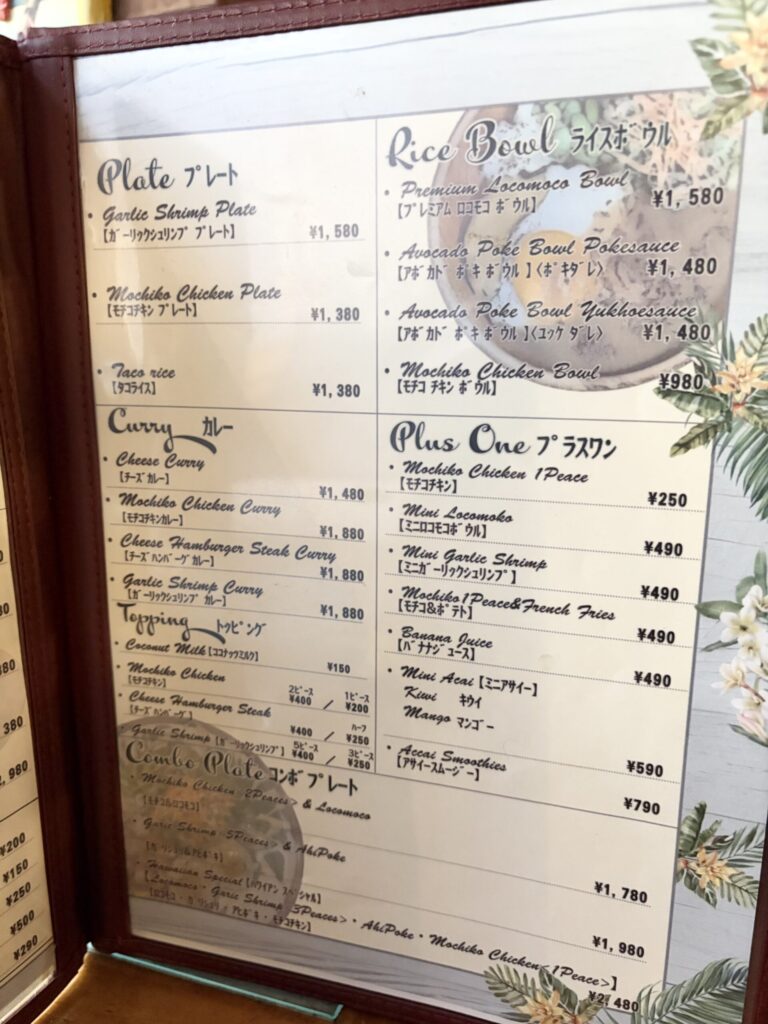 Plate プレート
• Garlic Shrimp Plate
【ガーリックシュリンプ プレート】 ¥1,580
• Mochiko Chicken Plate
【モチコチキン プレート】 ¥1,380
• Taco rice
【タコライス】 ¥1,380
Rice Bowl ライスボウル
• Premium Locomoco Bowl
【プレミアム ロコモコ ボウル】 ¥1,580
• Avocado Poke Bowl Pokesauce
【アボカド ポキ ボウル】〈ポキダレ〉 ¥1,480
• Avocado Poke Bowl Yukhoesauce
【アボカド ポキ ボウル】〈ユッケダレ〉 ¥1,480
• Mochiko Chicken Bowl
【モチコ チキン ボウル】 ¥980
Curry カレー
• Cheese Curry
【チーズカレー】 ¥1,480
• Mochiko Chicken Curry
【モチコチキンカレー】 ¥1,880
• Cheese Hamburger Steak Curry
【チーズハンバーグカレー】 ¥1,880
• Garlic Shrimp Curry
【ガーリックシュリンプ カレー】 ¥1,880
Topping トッピング
• Coconut Milk【ココナッツミルク】 ¥150
• Mochiko Chicken
【モチコチキン】 2ピース ¥400 / 1ピース ¥200
• Cheese Hamburger Steak
【チーズハンバーグ】 ¥400 / ハーフ ¥250
• Garlic Shrimp【ガーリックシュリンプ】 5ピース ¥400 / 3ピース ¥250
Plus One プラスワン
• Mochiko Chicken 1Peace
【モチコチキン】 ¥250
• Mini Locomoko
【ミニロコモコボウル】 ¥490
• Mini Garlic Shrimp
【ミニガーリックシュリンプ】 ¥490
• Mochiko1Peace&French Fries
【モチコ&ポテト】 ¥490
• Banana Juice
【バナナジュース】 ¥490
• Mini Acai【ミニアサイー】
Kiwi キウイ
Mango マンゴー
¥590
• Accai Smoothies
【アサイースムージー】 ¥790
Combo Plate コンボプレート
• Mochiko Chicken <2Peaces> & Locomoco
【モチコ&ロコモコ】 ¥1,780
• Garic Shrimp <5Peaces> & AhiPoke
【ガーリシュリ&アヒポキ】 ¥1,980
• Hawaiian Special【ハワイアン スペシャル】
【Locomoco・Garic Shrimp <3Peaces>・AhiPoke・Mochiko Chicken<1Peace>】
【ロコモコ・ガーリシュリ / アヒポキ・モチコチキン】 ¥2,480
380
,980
¥200
¥150
¥250
¥500
¥290